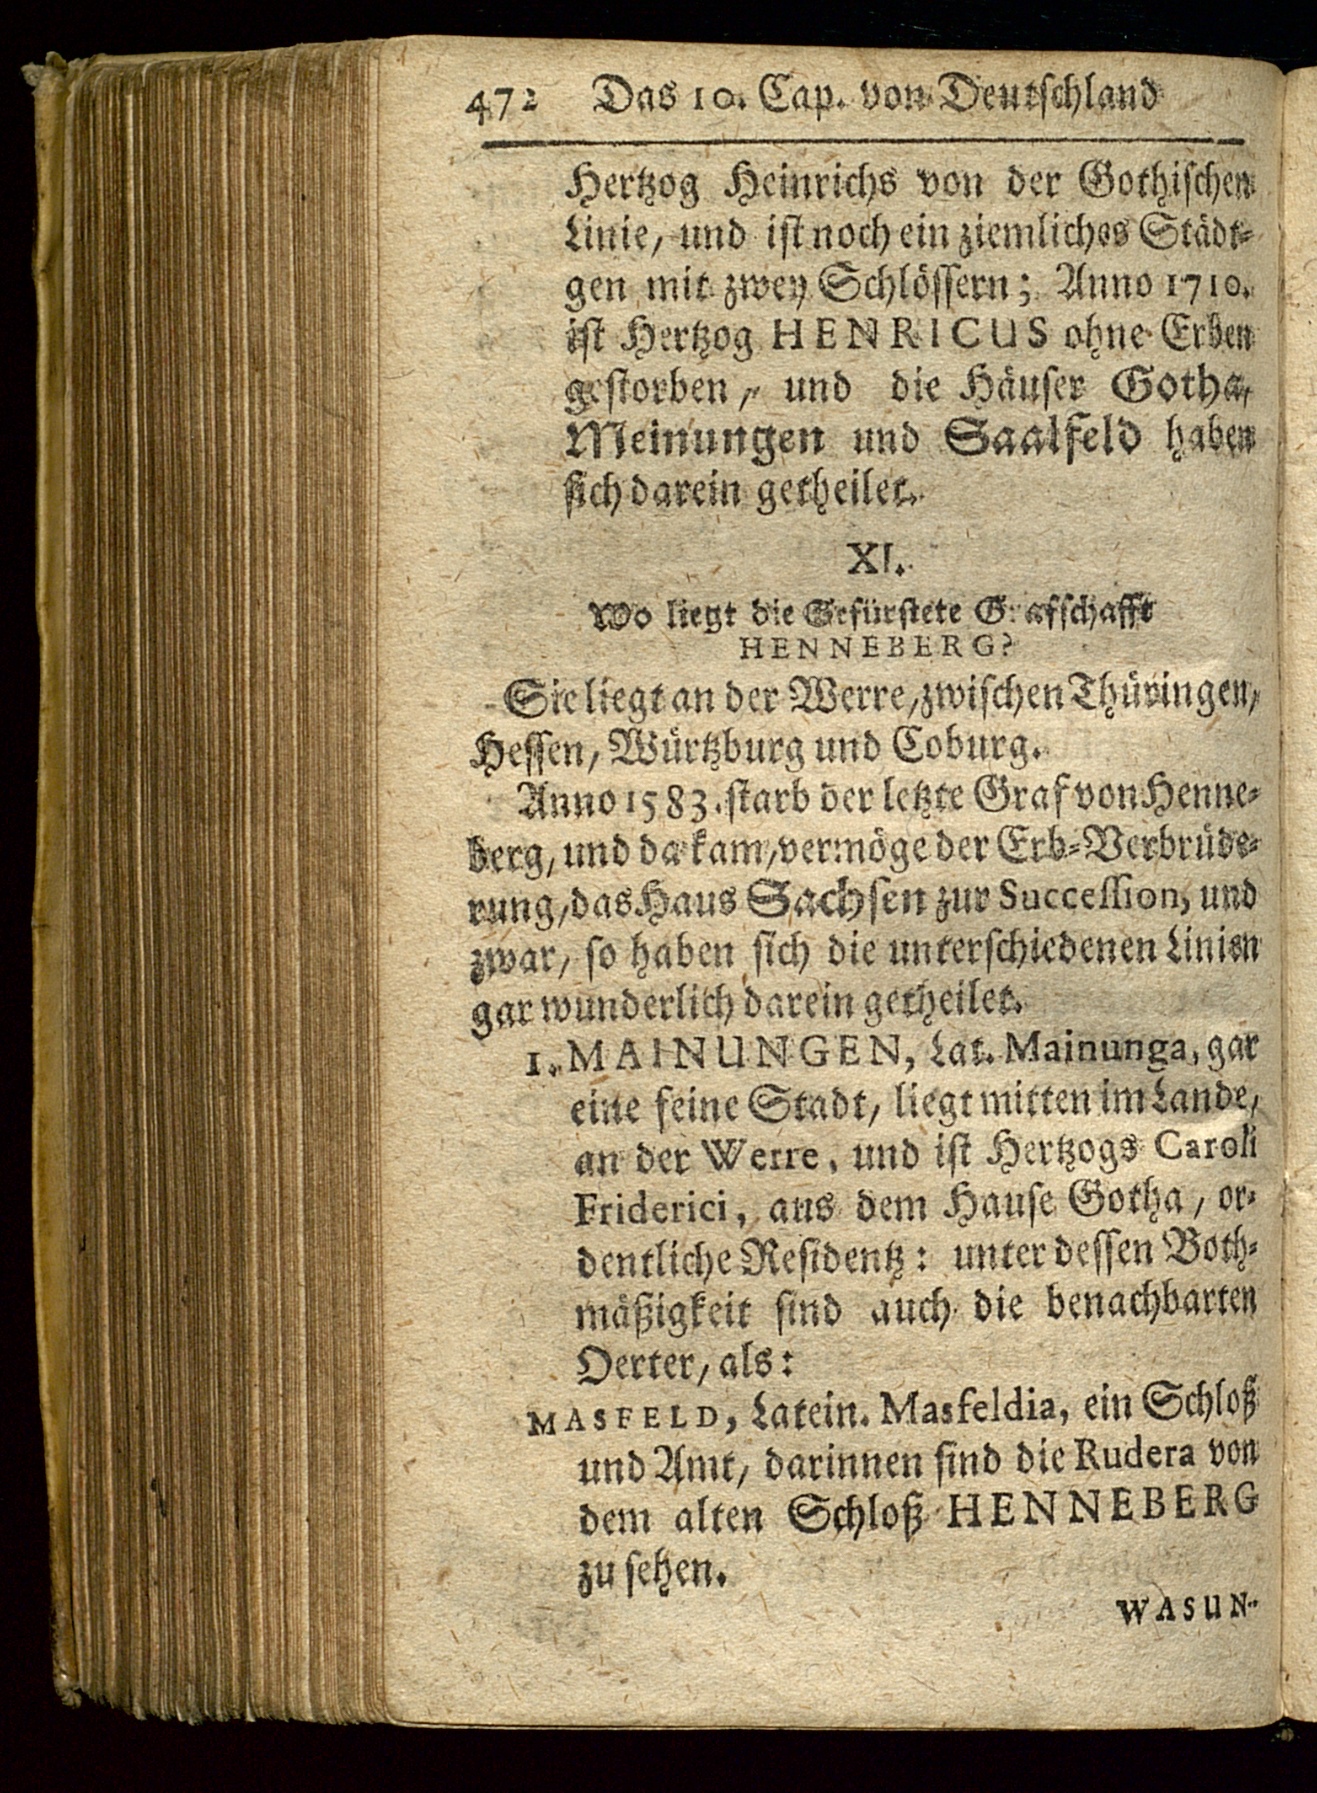 472 Das 10. Cap. von Deutschland
Hertzog Heinrichs von der Gothischen
Linie, und ist noch ein ziemliches Städt-
gen mit zwey Schlössern; Anno 1710.
ist Hertzog HENRICUS ohne Erben
gestorben, und die Häuser Gotha,
Meinungen und Saalfeld haben
sich darein getheilet.
XI.
Wo liegt die Gefürstete Grafschafft
HENNEBERG?
Sie liegt an der Werre, zwischen Thüringen,
Hessen, Würtzburg und Coburg.
Anno 1583. starb der letzte Graf von Henne-
berg, und da kam, vermöge der Erb-Verbrüde-
rung, das Haus Sachsen zur Succession, und
zwar, so haben sich die unterschiedenen Linien
gar wunderlich darein getheilet.
1. MAINUNGEN, Lat. Mainunga, gar
eine feine Stadt, liegt mitten im Lande,
an der Werre, und ist Hertzogs Caroli
Friderici, aus dem Hause Gotha, or-
dentliche Residentz: unter dessen Both-
mäßigkeit sind auch die benachbarten
Oerter, als:
MASFELD, Latein. Masfeldia, ein Schloß
und Amt, darinnen sind die Rudera von
dem alten Schloß HENNEBERG
zu sehen.
WASUN-